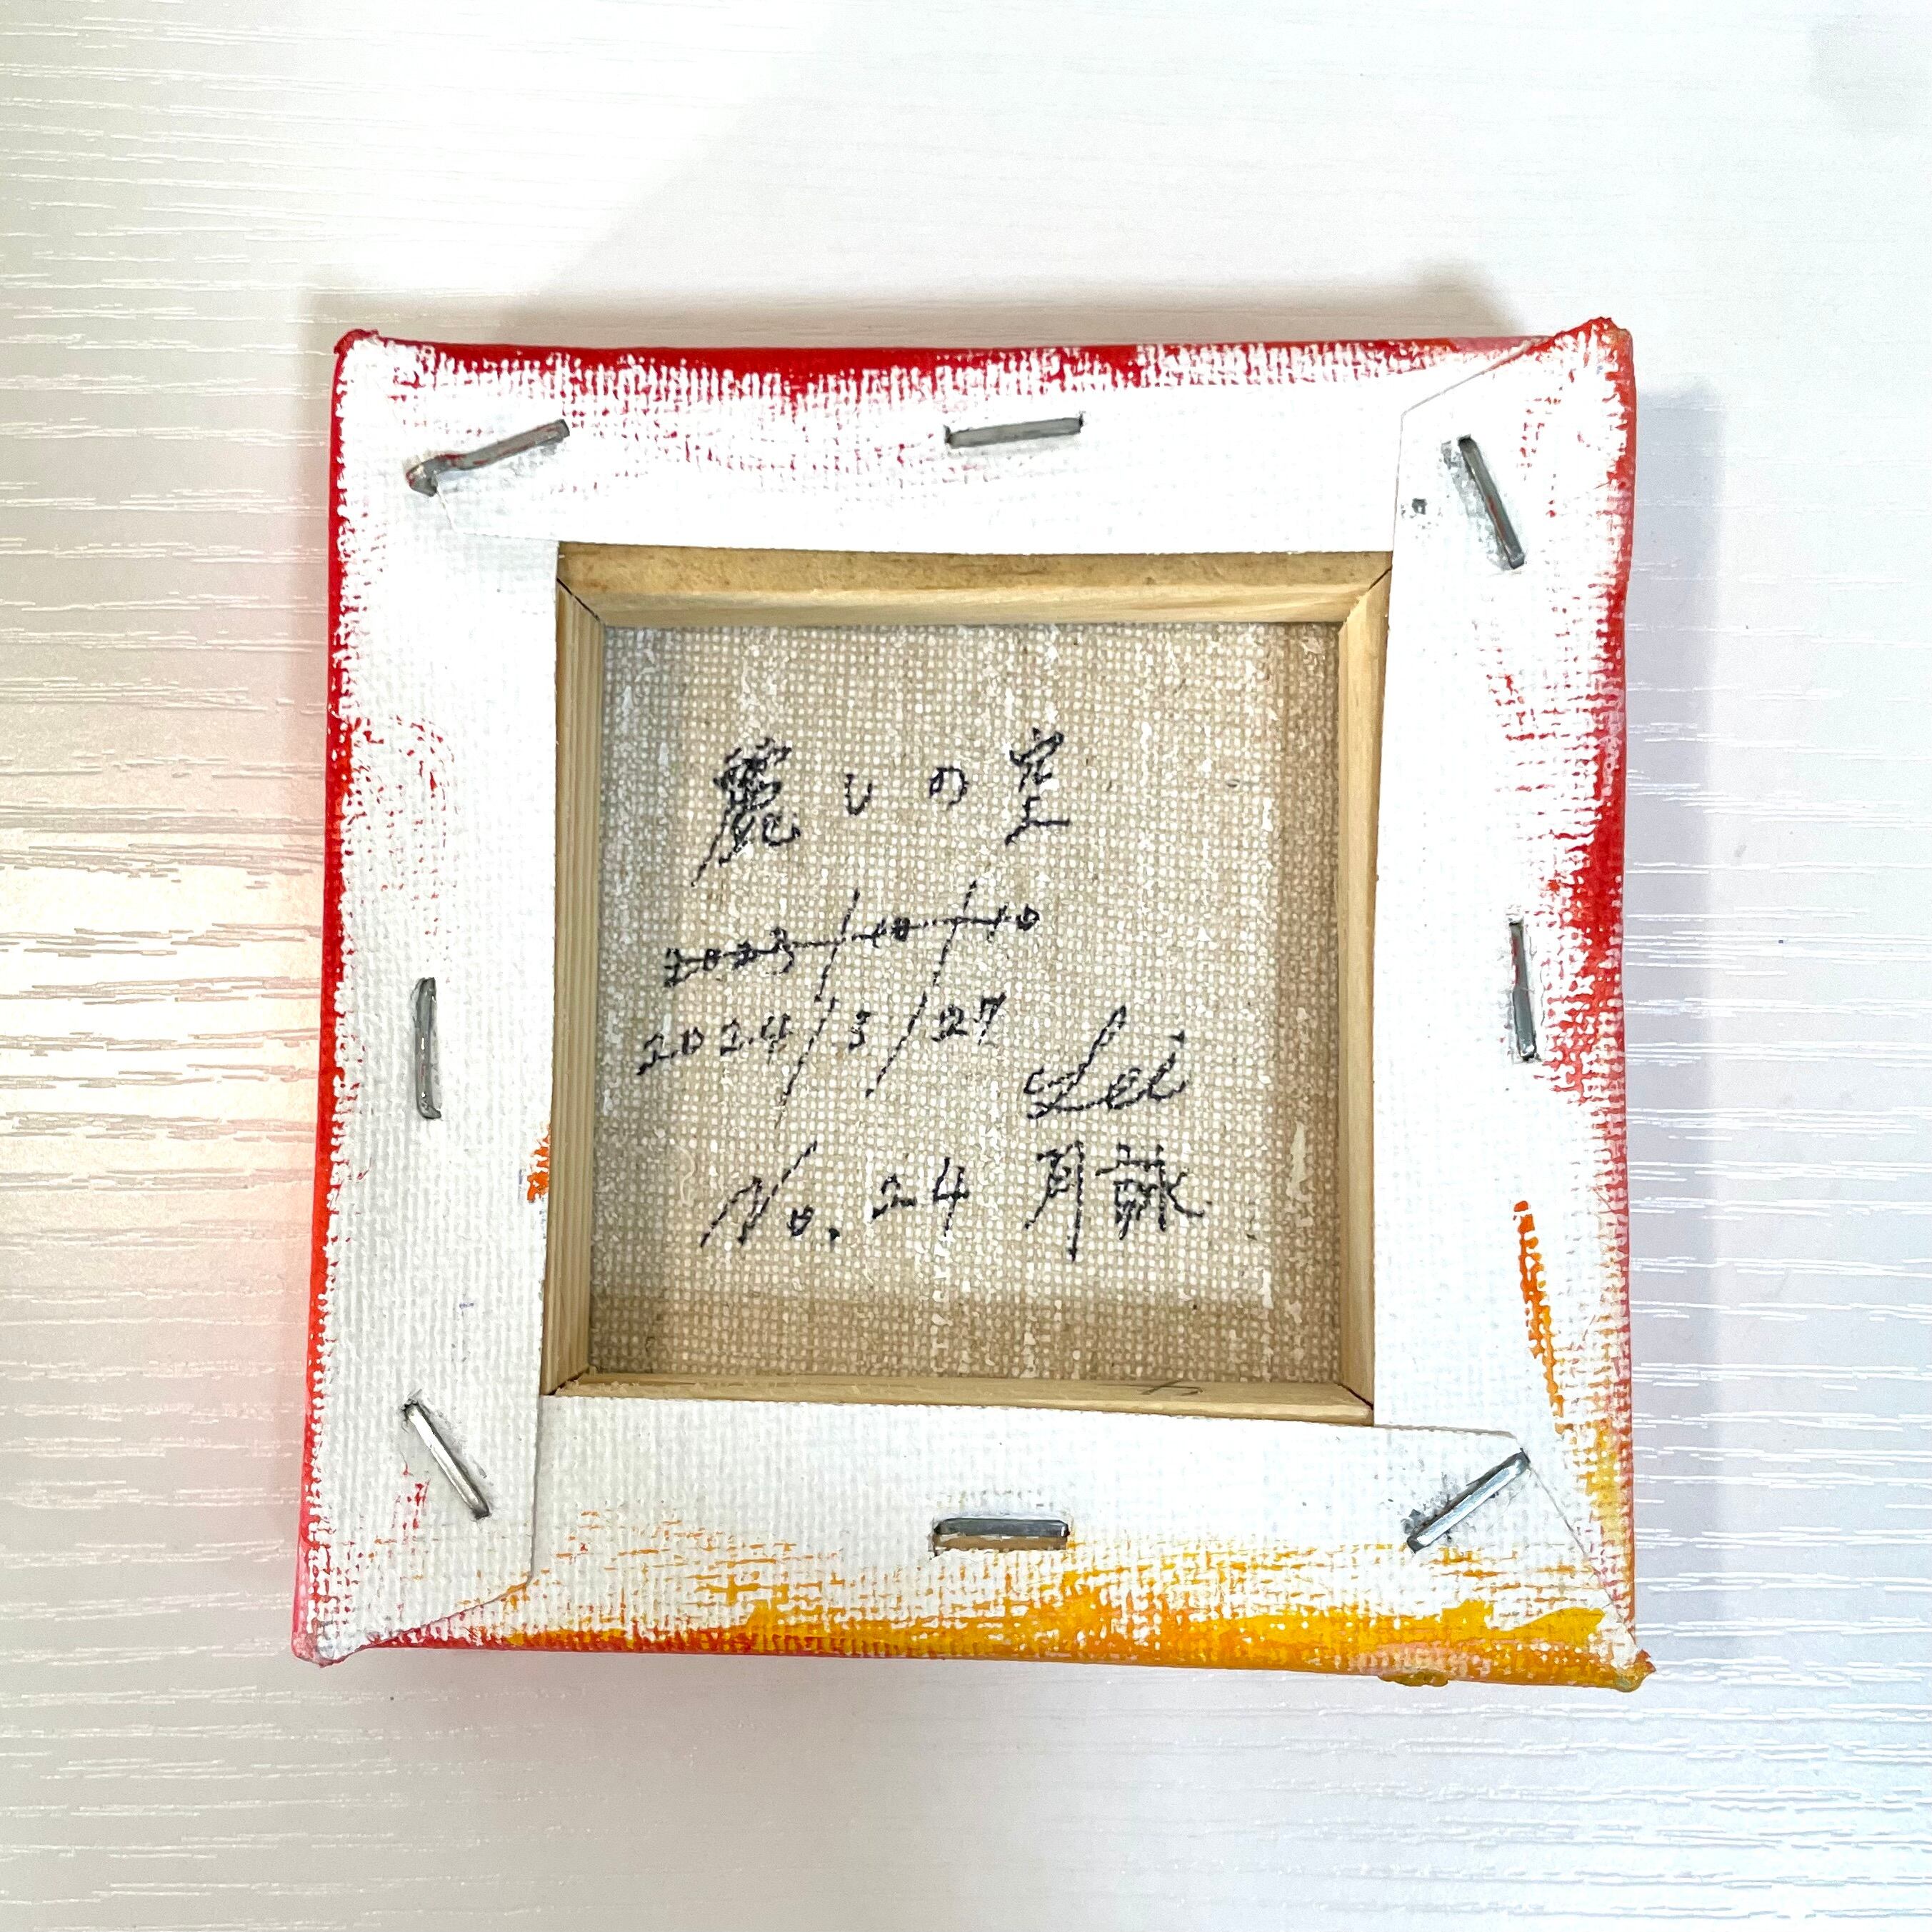 麗しの空
2023/10/10
2024/3/27
Lei
No.24 月詠